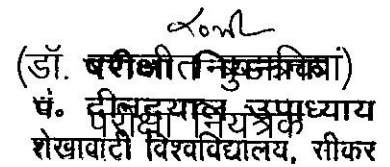 (डॉ.
पं. दीनदयाल उपाध्याय
परीक्षा नियंत्रक
शेखावाटी विश्वविद्यालय, सीकर